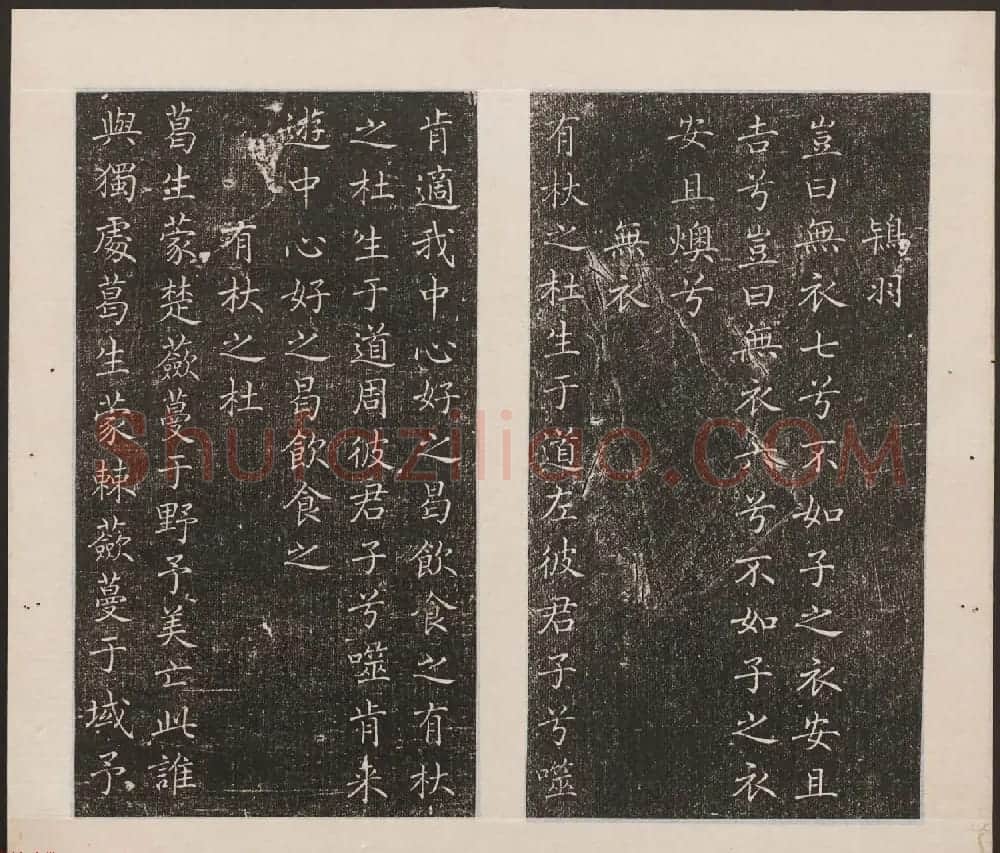 鴇羽
豈曰無衣七兮不如子之衣安且
吉兮豈曰無衣六兮不如子之衣
安且燠兮
無衣
有杕之杜生于道左彼君子兮噬
肯適我中心好之曷飲食之有杕
之杜生于道周彼君子兮噬肯来
遊中心好之曷飲食之
有杕之杜
葛生蒙楚蘞蔓于野予美亡此誰
與獨處葛生蒙棘蘞蔓于域予
Shufaziliao.COM